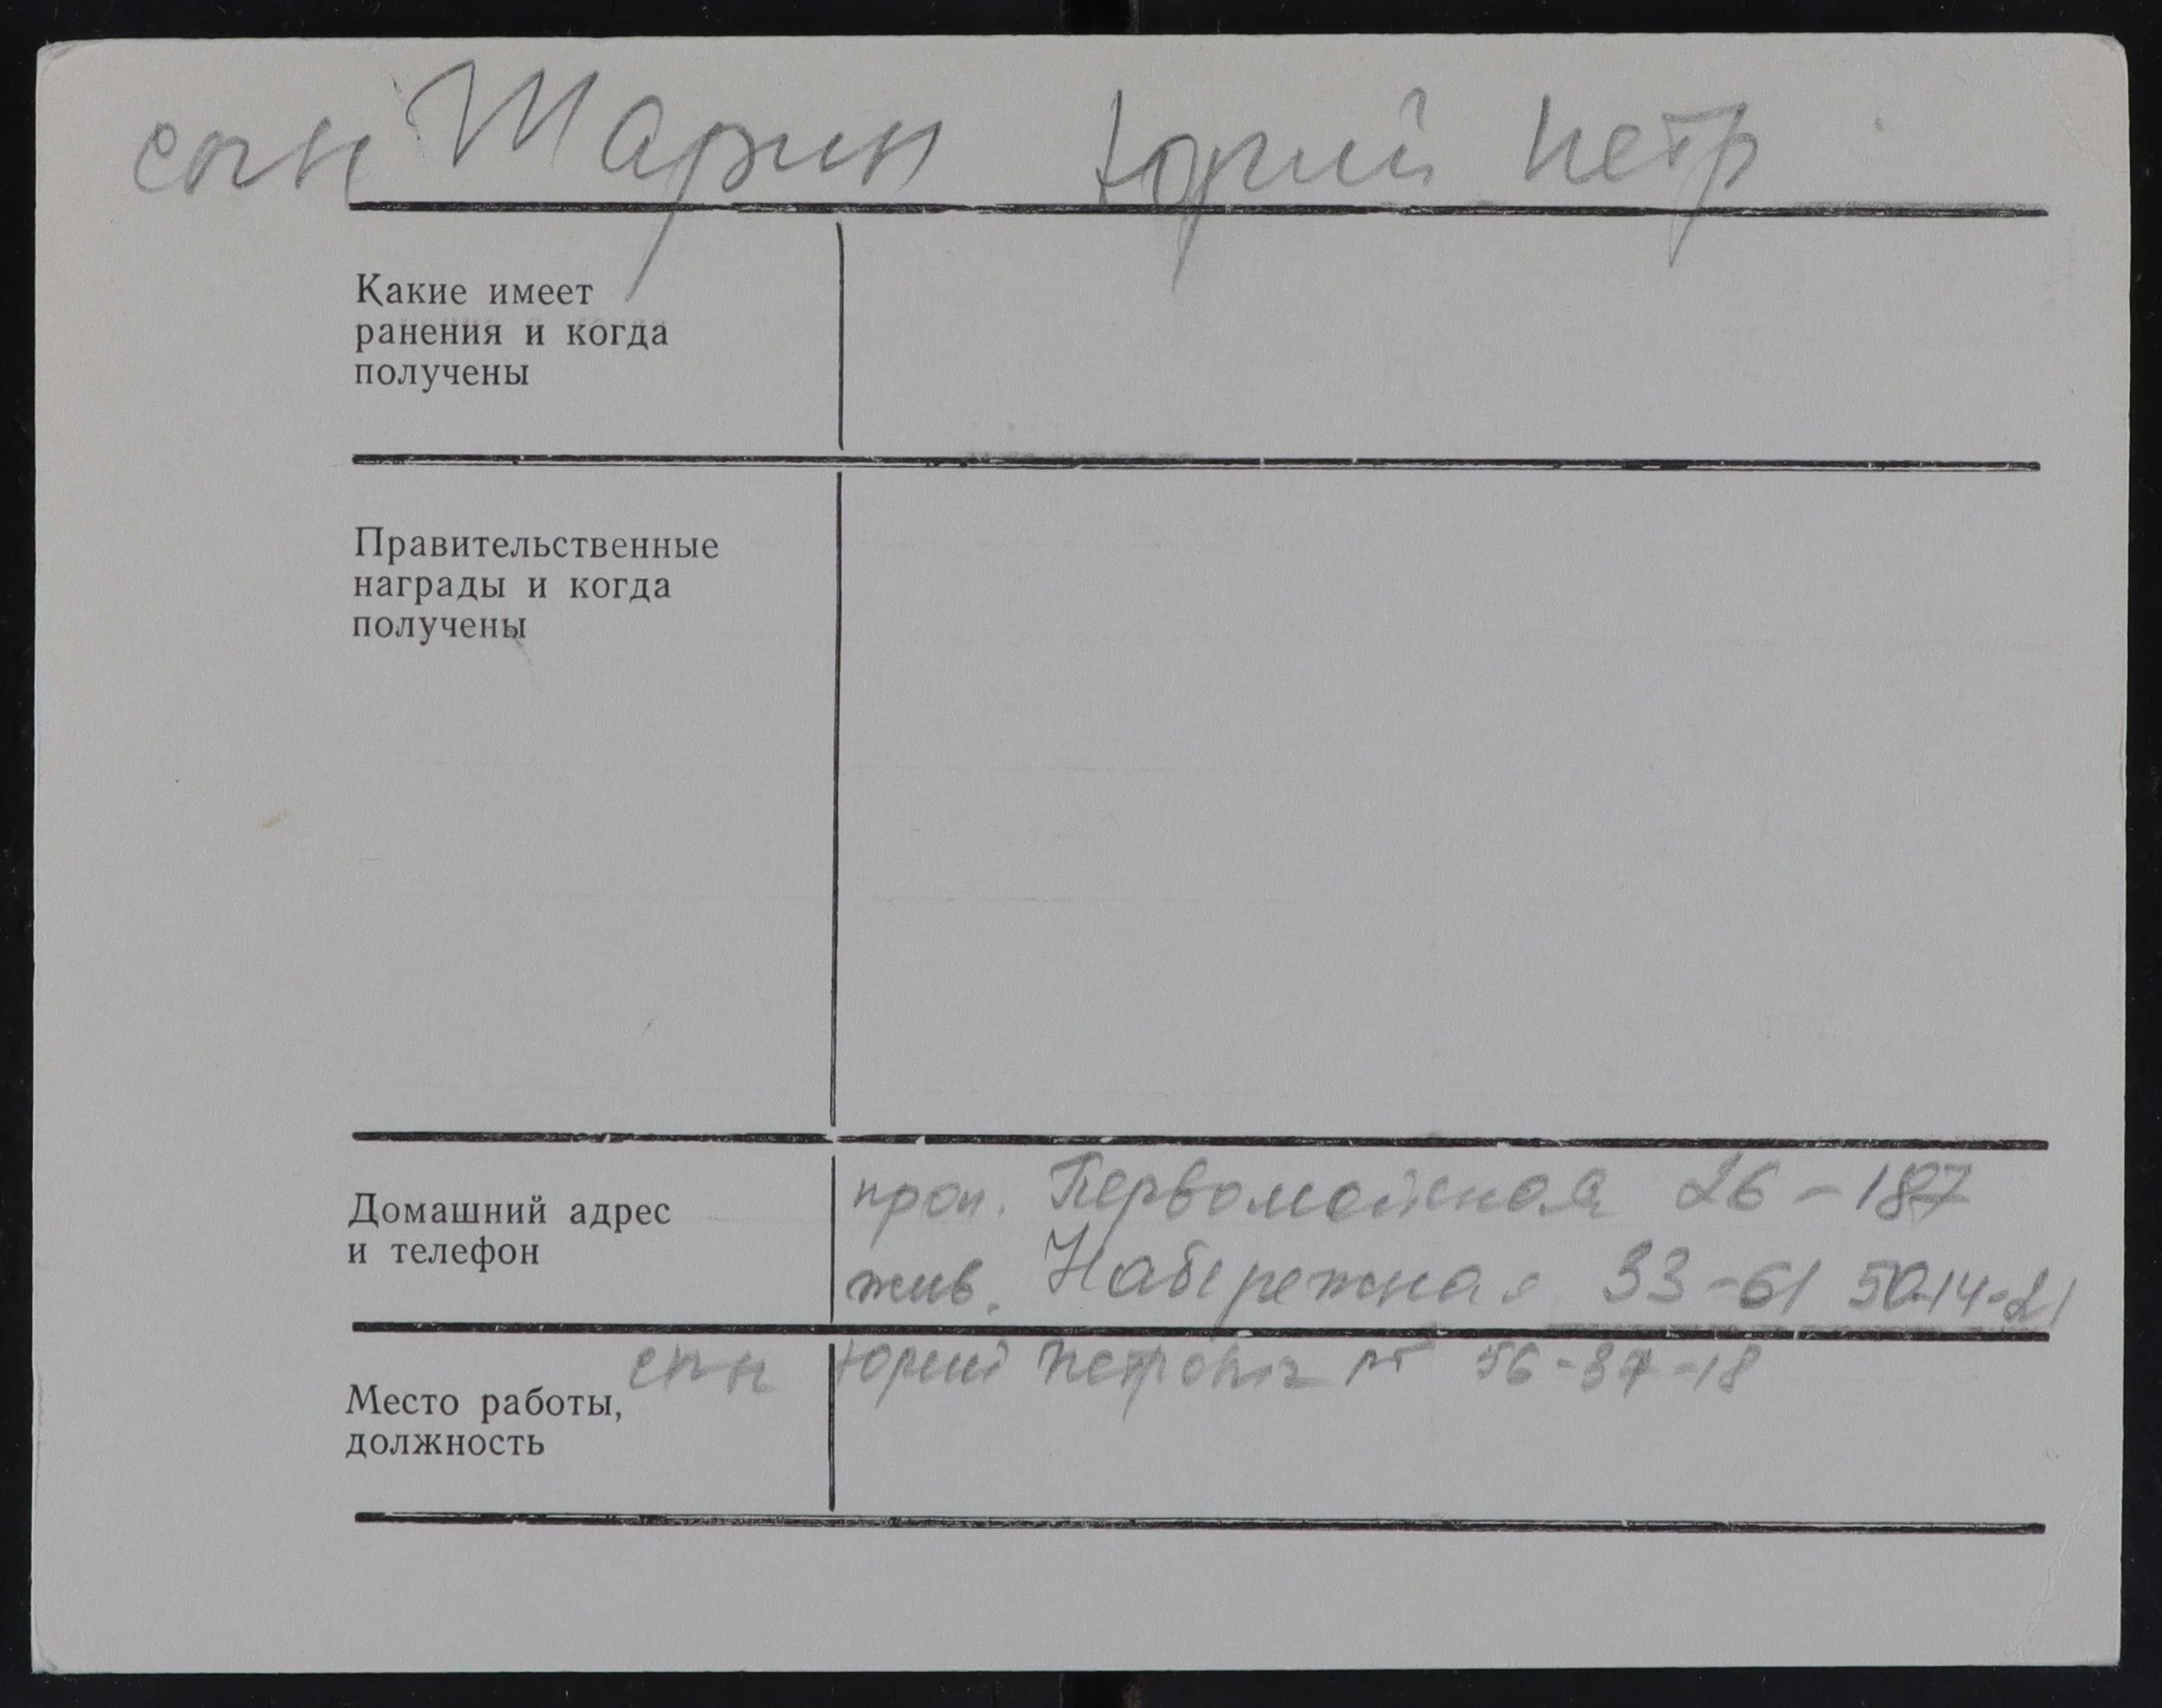 сын Шарин Юрий Петр
Какие имеет
ранения и когда
получены
Правительственные
награды и когда
получены
Домашний адрес
и телефон
проп. Первомайская 26-187
жив. Набережная 33-61 50-14-21
сын Юрий Петрович рт 56-37-18
Место работы,
должность